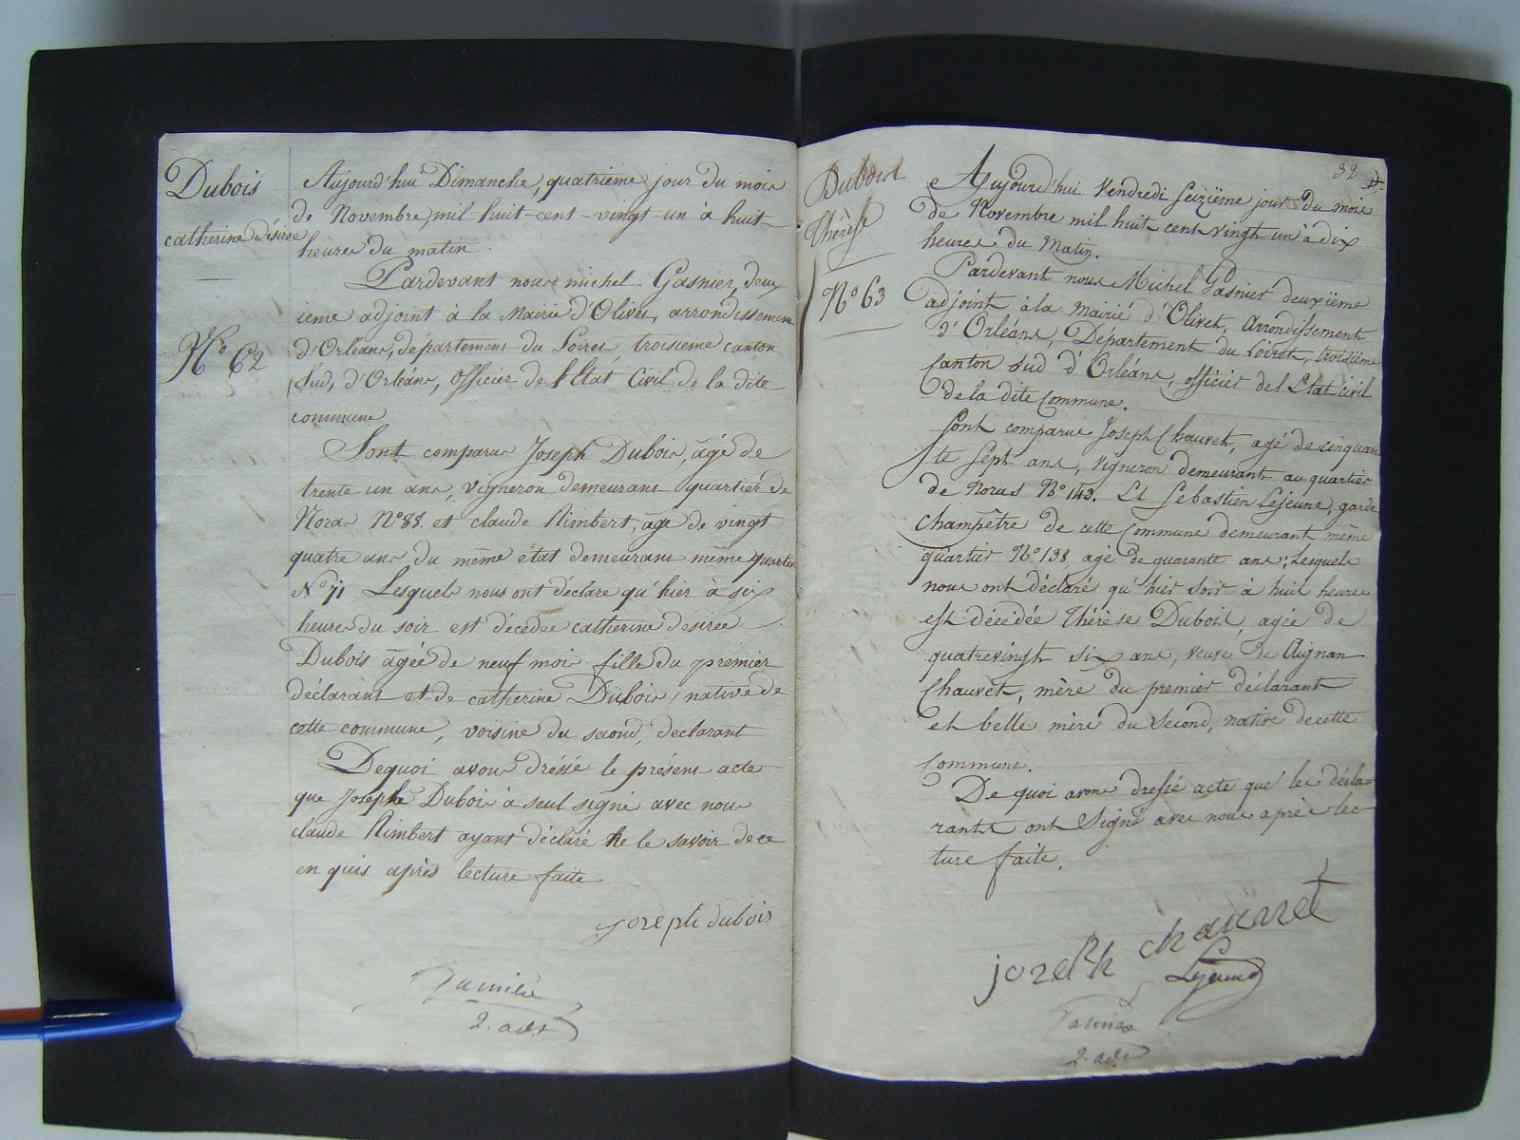 Dubois
catherine désirée
N.o 62
Aujourd'hui Dimanche, quatrième jour du mois
de Novembre, mil huit-cent-vingt-un à huit
heures du matin
Pardevant nous michel Gasnier, deux
ieme adjoint à la Mairie d'Olivet, arrondissement
d'Orléans, departement du Loiret, troisieme canton
Sud, d'Orléans, Officier de l'Etat Civil de la dite
commune
Sont comparus Joseph Dubois, âgé de
trente un ans, vigneron demeurant quartier de
Noras N.o 88. et claude Rimbert, âgé de vingt
quatre ans du même état demeurant même quartier
N.o 71 Lesquels nous ont déclaré qu'hier à six
heures du soir est décédée catherine desirée
Dubois âgée de neuf mois fille du premier
déclarant et de catherine Dubois, native de
cette commune, voisine du second, declarant
Dequoi avons dressé le présent acte
que Joseph Dubois à seul signé avec nous
claude Rimbert ayant déclaré ne le savoir de ce
en quis après lecture faite
joseph dubois
2. adj.
Dubois
Thérèse
N.o 63
32
Aujourd'hui Vendredi Seizième jour du mois
de Novembre mil huit cent vingt un à dix
heures du Matin.
Pardevant nous Michel Gasnier deuxième
adjoint à la Mairie d'Olivet, Arrondissement
d'Orléans, Département du Loiret, troisième
Canton Sud d'Orléans, officier de l'Etat civil
de la dite Commune.
Sont comparus Joseph Chauvet, agé de cinquan
te sept ans, Vigneron demeurant au quartier
de Noras N.o 143. Et Sebastien Lejeune, garde
champêtre de cette Commune demeurant même
quartier N.o 138 agé de quarante ans; Lesquels
nous ont déclaré qu'hier soir à huit heures
est décédée Thérèse Dubois, agée de
quatrevingt six ans, veuve de Aignan
Chauvet, mère du premier déclarant
et belle mère du Second, native de cette
Commune.
De quoi avons dressé acte que les décla-
rants ont Signé avec nous après lec
ture faite.
joseph chauvet
Lejeune
2. adj.